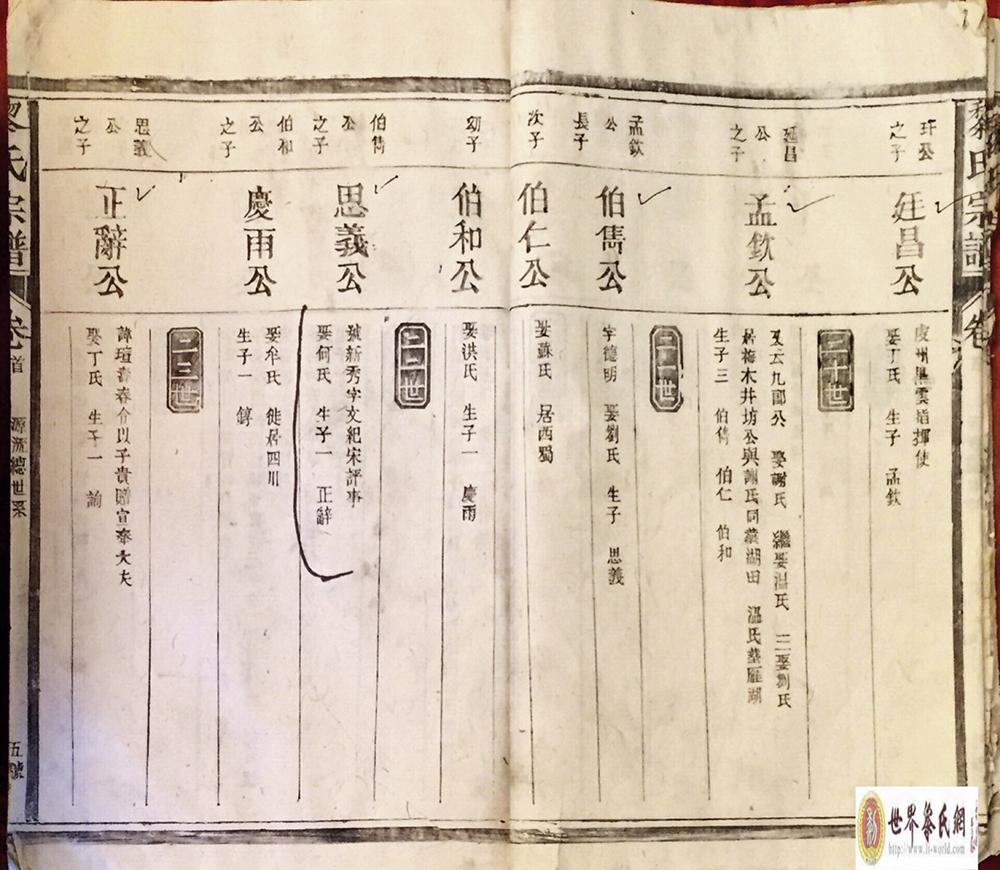 黎氏宗譜
卷
玕公
之子
廷昌公
虔州黑雲指揮使
娶丁氏 生子 孟欽
二十世
廷昌
公
之子
孟欽公
又云九郎公 娶謝氏 繼娶温氏 三娶劉氏
居梅木井坊公與謝氏同葬湖田 温氏葬雁湖
生子三 伯儁 伯仁 伯和
二一世
孟欽
公
長子
伯儁公
字德明 娶劉氏 生子 思義
次子
伯仁公
娶蘇氏 居西蜀
幼子
伯和公
娶洪氏 生子一 慶雨
二二世
伯儁
公
之子
思義公
號新秀字文紀宋評事
娶何氏 生子一 正辭
伯和
公
之子
慶雨公
娶牟氏 徙居四川
生子一 錞
二三世
思義
公
之子
正辭公
諱瑄壽春介以子貴贈宣奉大夫
娶丁氏 生子一 諭
黎氏宗譜
卷首
源流總世系
五號
世界黎氏網
http://www.li-world.com